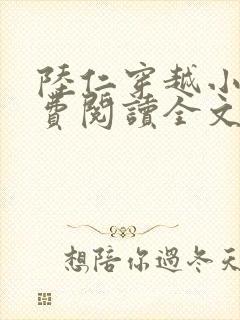 陸仁穿越小
費閱讀全文
想陪你過冬天